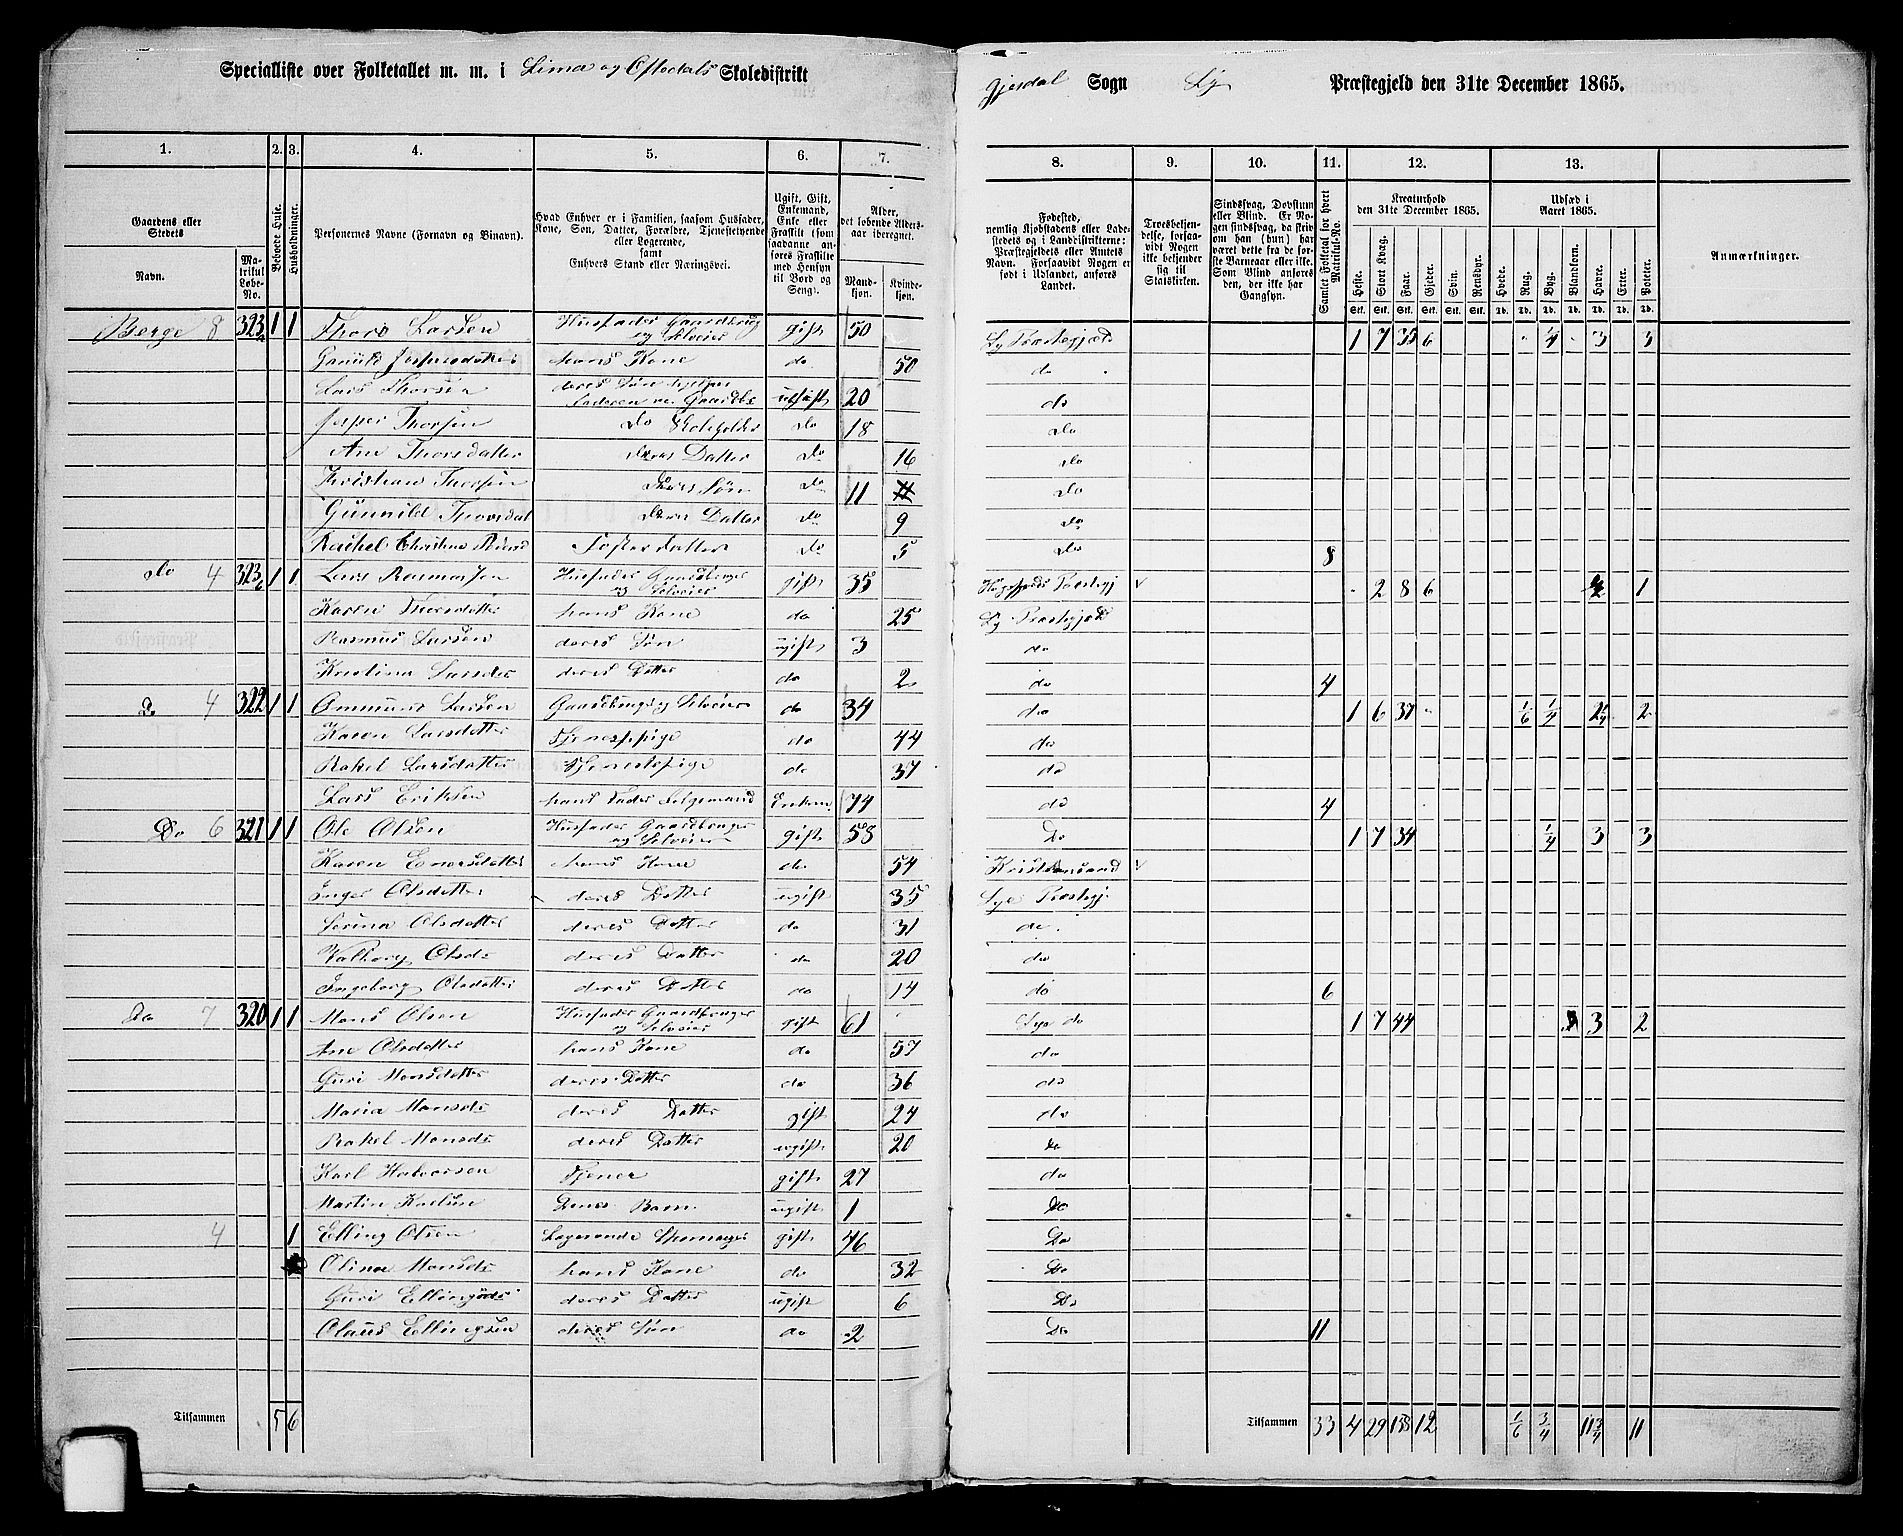 Specialliste over Folketallet m. m. i Lima og Oftedals Skoledistrikt
Gjesdal Sogn Ly Præstegjeld den 31te December 1865.
1. 2. 3. 4. 5. 6. 7. 8. 9. 10. 11. 12. 13.
Gaardens eller Stedets
Navn.
Matrikul Løbe-No.
Beboede Huse.
Husholdninger.
Personernes Navne (Fornavn og Binavn).
Hvad Enhver er i Familien, saasom Husfader, Kone, Søn, Datter, Forældre, Tjenestetyende eller Logerende, samt Enhvers Stand eller Næringsvei.
Ugift, Gift, Enkemand, Enke eller Fraskilt (som saadanne anføres Fraskilte med Hensyn til Bord og Seng).
Alder, det løbende Aldersaar iberegnet.
Mandkjøn. Kvindekjøn.
Fødested, nemlig Kjøbstadens eller Ladestedets og i Landdistrikterne: Præstegjeldets eller Amtets Navn. Forsaavidt Nogen er født i Udlandet, anføres Landet.
Troesbekjendelse, forsaavidt Nogen ikke bekjender sig til Statskirken.
Sindssvag, Døvstum eller Blind. Er Nogen sindssvag, da skrives om han (hun) har været dette fra de første Barneaar eller ikke. Som Blind anføres den, der ikke har Gangsyn.
Samlet Folketal for hvert Matrikul-No.
Kreaturhold den 31te December 1865.
Heste. Stort Kvæg. Faar. Gjeder. Svin. Rensdyr.
Udsæd i Aaret 1865.
Hvede. Rug. Byg. Blandkorn. Havre. Erter. Poteter.
Anmærkninger.
Berge 8 323a 1 1 Thore Larsen Husfader Gaardbrug og Selveier gift 50 Ly Præstegjæld 1 7 35 6 1/4 3 3
Gunild Jespersdatter hans Kone do 50 do
Lars Thorsen deres Søn hjelper Faderen ugift 20 do
Jesper Thorsen Do Do 18 Do
Ane Thorsdatter Deres Datter Do 16 Do
Kristian Thorsen Deres Søn Do 11 Do
Gunnild Thorsdat Deres Datter Do 9 Do
Rachel Christine Fosterdatter Do 5 Do 8
Do 4 323b 1 1 Lars Rasmussen Husfader Gaardbruger og Selveier gift 35 Præstegj 2 8 6 1
Karen Thorsdatter hans Kone do 25 Ly Præstegjæld
Rasmus Larsen deres Søn ugift 3 do
Kristina Larsdtr deres Datter do 2 do 4
Do 4 322 1 1 Ommund Larsen Gaardbruger og Selveier do 34 do 1 6 37 1/6 1/4 2 1/4 2
Karen Larsdatter Tjenestpige do 44 do
Rakel Larsdatter Tjenestepige do 37 do
Lars Eriksen hans Fader Enkem. 74 do 4
Do 6 321 1 1 Ole Olsen Husfader Gaardbruger og Selveier gift 53 Do 1 7 34 1/4 3 3
Karen hans Kone do 54 Kristiansand
Inger Olsdatter deres Datter ugift 35 Lye Præstegj.
Serina Olsdatter deres Datter do 31 do
Valborg Olsdr deres Datter do 20 do
Ingeborg Olsdatter deres Datter do 14 do 6
Do 7 320 1 1 Mons Olsen Husfader Gaardbruger og Selveier gift 61 Lye do 1 7 44 3 2
Ane Olsdatter hans Kone do 57 do
Guri Monsdatter deres Datter do 36 do
Maria Monsdr deres Datter gift 24 do
Rakel Monsdr deres Datter ugift 20 Do
Karl Halvorsen Tjener gift 27 do
Martin Karlsen Deres Barn ugift 1 Do
4 1 Elling Olsen Logerende gift 46 Do
Olina Monsdr hans Kone do 32 Do
Guri Ellingsdr deres Datter ugift 6 Do
Olaus Ellingsen deres Søn do 2 Do 11
Tilsammen 5 6 Tilsammen 33 4 29 158 12 1/6 3/4 11 3/4 11